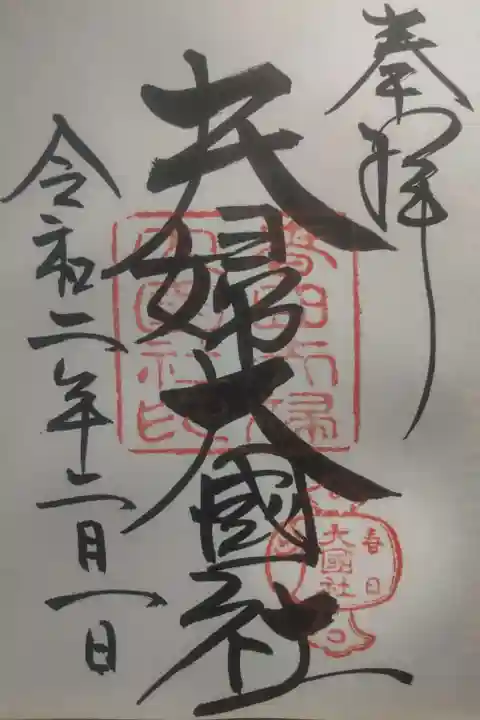 奉拝
夫婦大國社
春日夫婦
大國社印
春日
大國社
令和二年二月一日